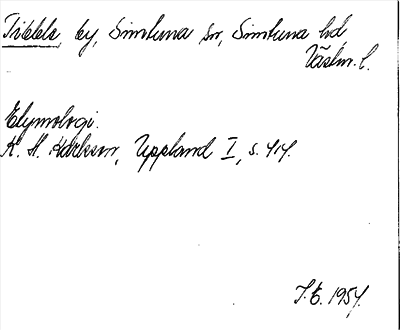 Tibble by, Simtuna sn, Simtuna hd
Västm. l.
Etymologi.
K. H. Karlsson, Uppland I, s. 414.
J.E. 1954.